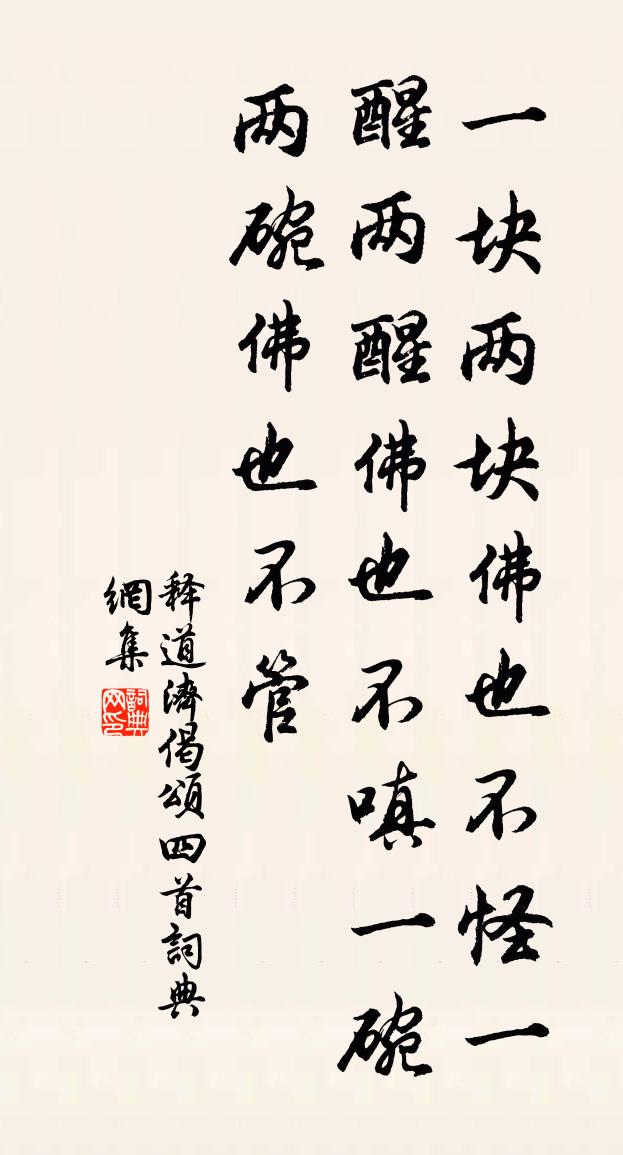 一块两块佛也不怪一
醒两醒佛也不嗔一碗
两碗佛也不管
释道济偈颂四首詞典
網集
詞典
网印